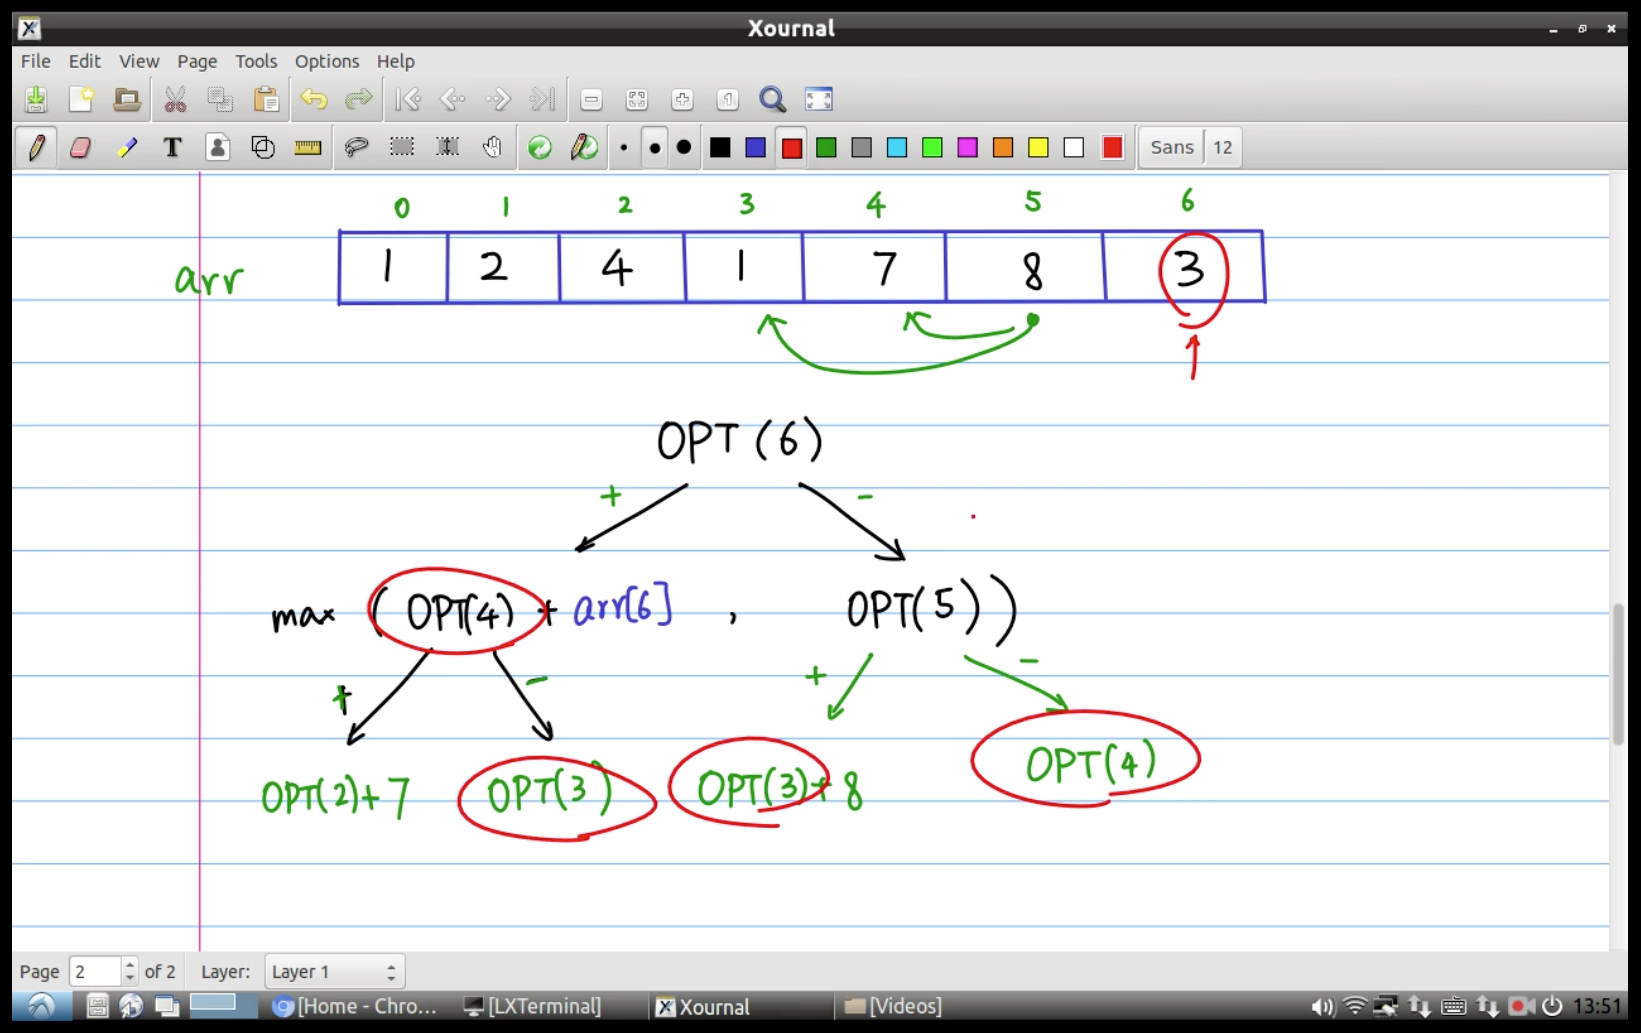 Xournal
File Edit View Page Tools Options Help
Sans 12
0 1 2 3 4 5 6
arr 1 2 4 1 7 8 3
OPT (6)
+ -
max ( OPT(4) + arr[6] , OPT(5) )
+ - + -
OPT(2)+ 7 OPT(3) OPT(3)+ 8 OPT(4)
Page 2 of 2 Layer: Layer 1
[Home - Chro... [LXTerminal] Xournal [Videos] 13:51